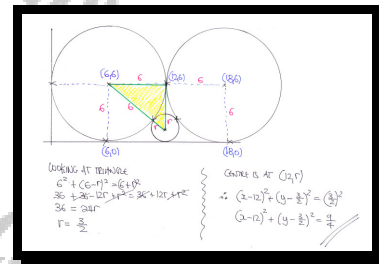 (6,6) 6 (12,6) 6 (18,6)
6 6 r r 6
(6,0) (18,0)
LOOKING AT TRIANGLE
6² + (6-r)² = (6+r)²
36 + 36 - 12r + r² = 36 + 12r + r²
36 = 24r
r = 3/2
CENTRE IS AT (12,r)
∴ (x-12)² + (y-3/2)² = (3/2)²
(x-12)² + (y-3/2)² = 9/4